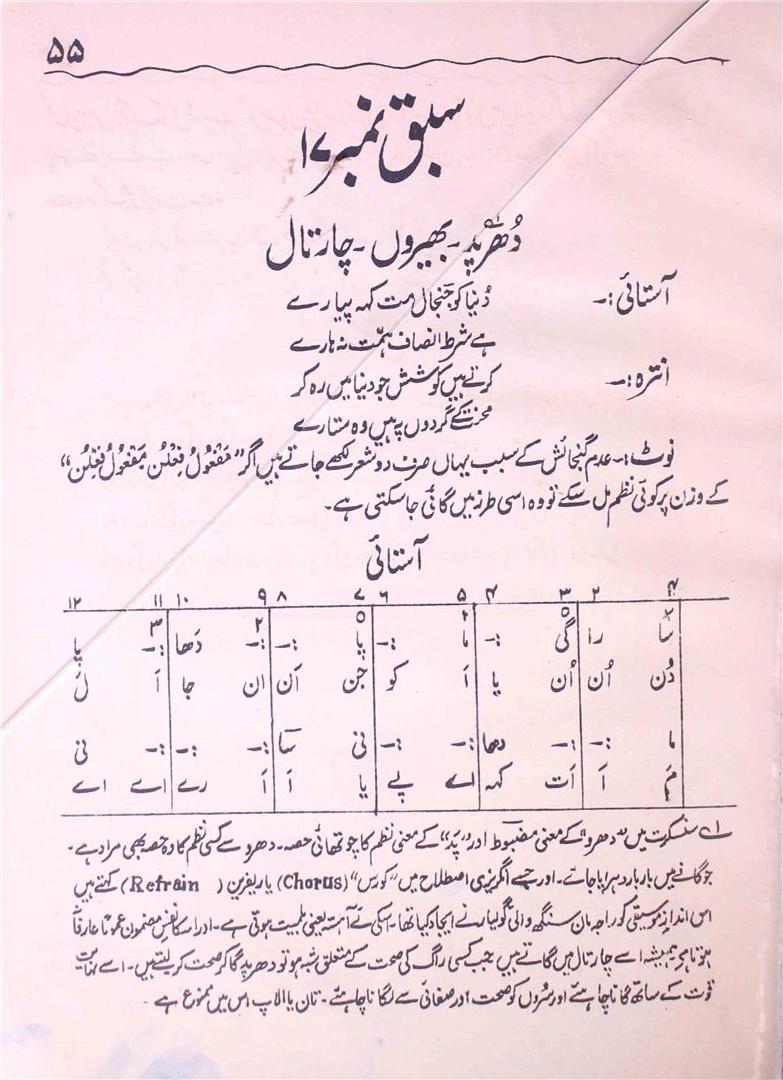 ۵۵
سبق نمبر ۱۷
دُھرپَد۔ بھیروں۔ چارتال
آستائی:۔ دُنیا کو جَنجال مت کہہ پیارے
ہے شرط انصاف ہمّت نہ ہارے
انترہ:۔ کرتے ہیں کوشش جو دنیا میں رہ کر
محنت کے گردوں پہ ہیں وہ ستارے
نوٹ:۔ عدم گنجائش کے سبب یہاں صرف دو شعر لکھے جاتے ہیں اگر "مَفعُولُ فِعلُن، مَفعُولُ فِعلُن"
کے وزن پر کوئی نظم مل سکے تو وہ اسی طرز میں گائی جاسکتی ہے۔
آستائی
۲ ۳ ۴ ۵ ۶ ۷ ۸ ۹ ۱۰ ۱۱ ۱۲
× ۰ ۲ ۰ ۲ ۳
سَا را گی :۔ ما :۔ پا :۔ :۔ دَھا :۔ پا
دُن اُن اُن یا اَ کو جَن اَن ان جا اَ لَ
ما :۔ :۔ دھا :۔ :۔ نی سَا :۔ :۔ :۔ نی
مَ اَ اَت کہہ اے پے یا اَ اَ رے اے اے
۱ے سنسکرت میں "دھرو" کے معنی مضبوط اور "پَد" کے معنی نظم کا چوتھائی حصہ۔ دھرو سے کسی نظم کا وہ حصہ بھی مراد ہے۔
جو گانے میں بار بار دہرایا جائے۔ اور جسے انگریزی اصطلاح میں "کورس" (Chorus) یا ریفرین (Refrain) کہتے ہیں
اس اندازِ موسیقی کو راجہ مان سنگھ والی گوالیار نے ایجاد کیا تھا۔ اسکی لَے آہستہ یعنی بلمپت ہوتی ہے۔ اور اس کا نفسِ مضمون عموماً عارفانہ
ہوتا ہے ہمیشہ اسے چارتال میں گاتے ہیں جب کسی راگ کی صحت کے متعلق شبہ ہو تو دھرپد گا کر صحت کر لیتے ہیں۔ اسے نہایت
قوت کے ساتھ گانا چاہیے اور سُروں کو صحت اور صفائی سے لگانا چاہئے۔ تان یا الاپ اس میں ممنوع ہے۔